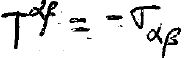 T^{αβ} = -T_{αβ}